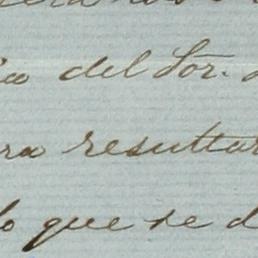 del Sor.
ra resultar
lo que se d